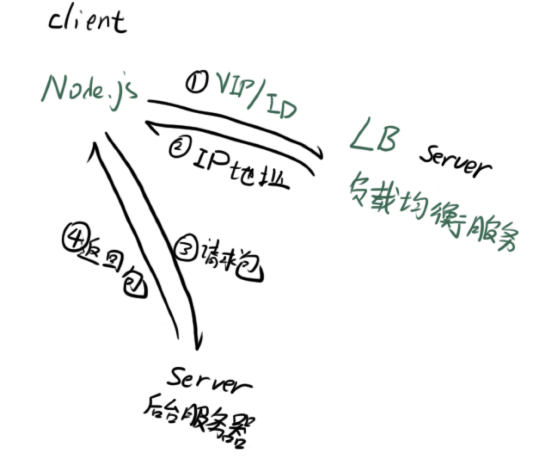 client
Node.js
① VIP/ID
② IP地址
LB Server
负载均衡服务
④返回包
③请求包
Server
后台服务器